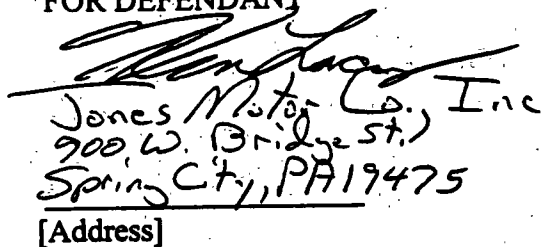 FOR DEFENDANT
Jones Motor Co., Inc
900 W. Bridge St.,
Spring City, PA 19475
[Address]